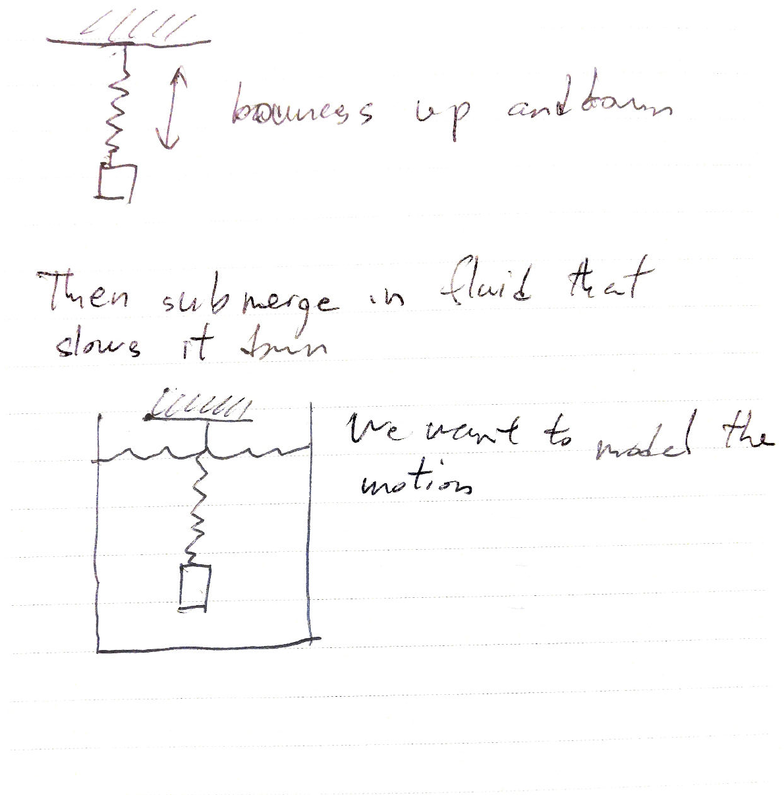 bounces up and down
Then submerge in fluid that
slows it down
We want to model the
motion